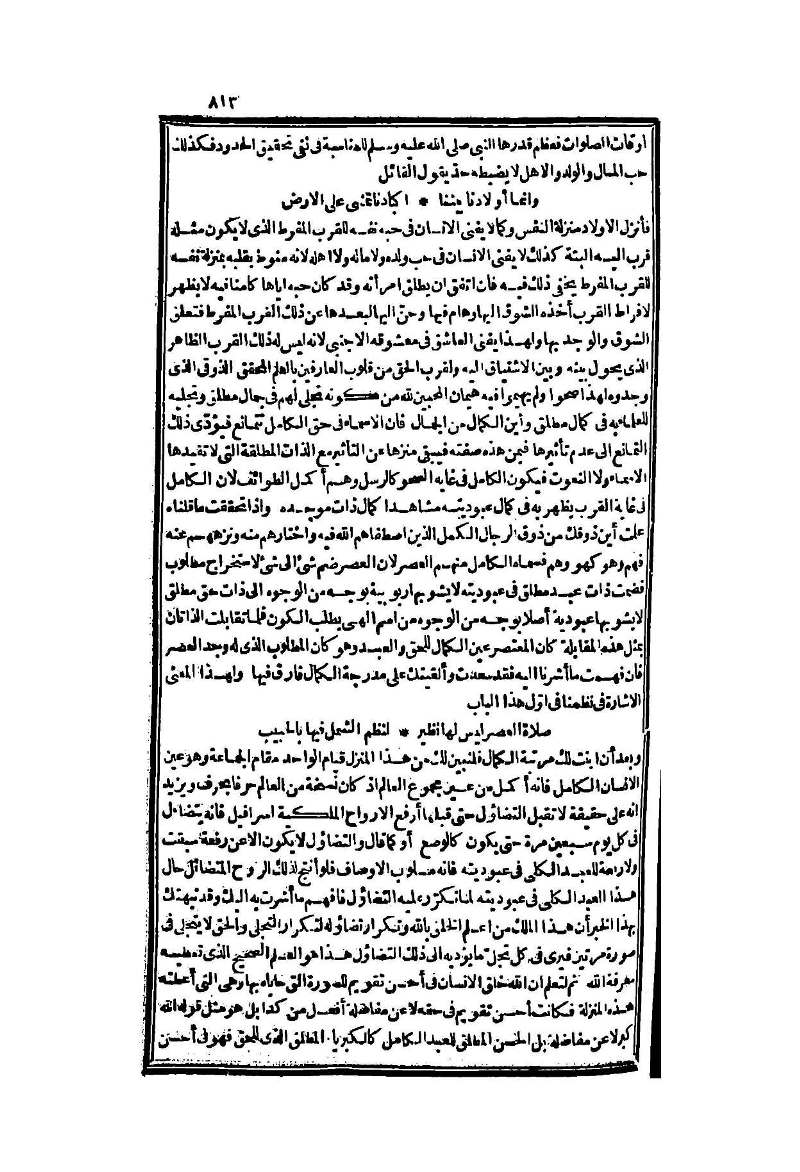 ٨١٣
أوقات الصلوات فعظم قدرها النبي صلى الله عليه وسلم للمناسبة في نفى تحقيق الحدود فكذلك
حب المال والولد والاهل لا يضبطه حد يقول القائل
وانما أولادنا بيننا * اكبادنا تمشى على الارض
فأنزل الاولاد منزلة النفس وكما لا يفنى الانسان في حبه نفسه للقرب المفرط الذى لا يكون مثله
قرب اليه البتة كذلك لا يفنى الانسان في حب ولده ولا ماله ولا أهله لانه منوط بقلبه بمنزلة نفسه
للقرب المفرط يخفى ذلك فيه فان اتفق ان يطلق امرأته وقد كان حبه اياها كامنا فيه لا يظهر
لافراط القرب أخذه الشوق اليها وهام فيها وحنّ اليها لبعدها عن ذلك القرب المفرط فتعلق
الشوق والوجد بها ولهذا يفنى العاشق في معشوقه الاجنبى لانه ليس له ذلك القرب الظاهر
الذى يحول بينه وبين الاشتياق اليه ولقرب الحق من قلوب العارفين بالعلم المحقق الذوقى الذى
وجدوه لهذا صحوا ولم يهيموا فيه هيمان المحبين لله من كونه تجلى لهم في جمال مطلق وتجليه
للعلماء به في كمال مطلق وأين الكمال من الجمال فان الاسماء في حق الكامل تتمانع فيؤدّى ذلك
التمانع الى عدم تأثيرها فيمن هذه صفته فيبقى منزها عن التأثير مع الذات المطلقة التى لا تقيدها
الاسماء ولا النعوت فيكون الكامل في غاية الصحو كالرسل وهم أكمل الطوائف لان الكامل
في غاية القرب يظهر به في كمال عبوديته مشاهدا كمال ذات موجده واذا تحققت ما قلناه
علمت أين ذوقك من ذوق الرجال الكمل الذين اصطفاهم الله فيه واختارهم منه ونزههم عنه
فهم وهو كهو وهم فسماه الكامل منهم العصر لان العصر ضم شئ الى شئ لاستخراج مطلوب
فضمت ذات عبد مطلق في عبوديته لا يشوبها ربوبية بوجه من الوجوه الى ذات حق مطلق
لا يشوبها عبودية أصلا بوجه من الوجوه من اسم الهى يطلب الكون فلما تقابلت الذاتان
بمثل هذه المقابلة كان المعتصر عين الكمال للحق والعبد وهو كان المطلوب الذى له وجد العصر
فان فهمت ما أشرنا اليه فقد سعدت وألقيتك على مدرجة الكمال فارق فيها ولهذا المعنى
الاشارة في نظمنا في اوّل هذا الباب
صلاة العصر ليس لها نظير * لنظم الشمل فيها بالحبيب
وبعد أن ابنت لك مرتبة الكمال فلنبين لك من هذا المنزل قيام الواحد مقام الجماعة وهو عين
الانسان الكامل فانه أكمل من عين مجموع العالم اذ كان نسخة من العالم حرفا بحرف ويزيد
انه على حقيقة لا تقبل التضاؤل حتى قبلها أرفع الارواح الملكية اسرافيل فانه يتضاءل
في كل يوم سبعين مرة حتى يكون كالوصع أو كما قال والتضاؤل لا يكون الا عن رفعة سبقت
ولا رفعة للعبد الكلى في عبوديته فانه مسلوب الاوصاف فلو أنتج لذلك الروح المتضائل حال
هذا العبد الكلى في عبوديته لما تكرّر عليه التضاؤل فافهم ما أشرت به اليك وقد نبهتك
بهذا الخبر أن هذا الملك من اعلم الخلق بالله وتكرار تضاؤله لتكرار التجلى والحق لا يتجلى في
صورة مرتين فيرى في كل تجل ما يؤديه الى ذلك التضاؤل هذا هو العلم الصحيح الذى تعطيه
معرفة الله ثم لتعلم ان الله خلق الانسان في أحسن تقويم للصورة التى خلقه بها وهى التى أعطته
هذه المنزلة فكانت أحسن تقويم في حقه لا عن مفاضلة أفعل من كذا بل هو مثل قوله الله
كبر لا عن مفاضلة بل الحسن المطلق للعبد الكامل كالكبرياء المطلق الذى للحق فهو في أحسن